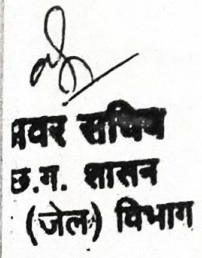 अवर सचिव
छ.ग. शासन
(जेल) विभाग